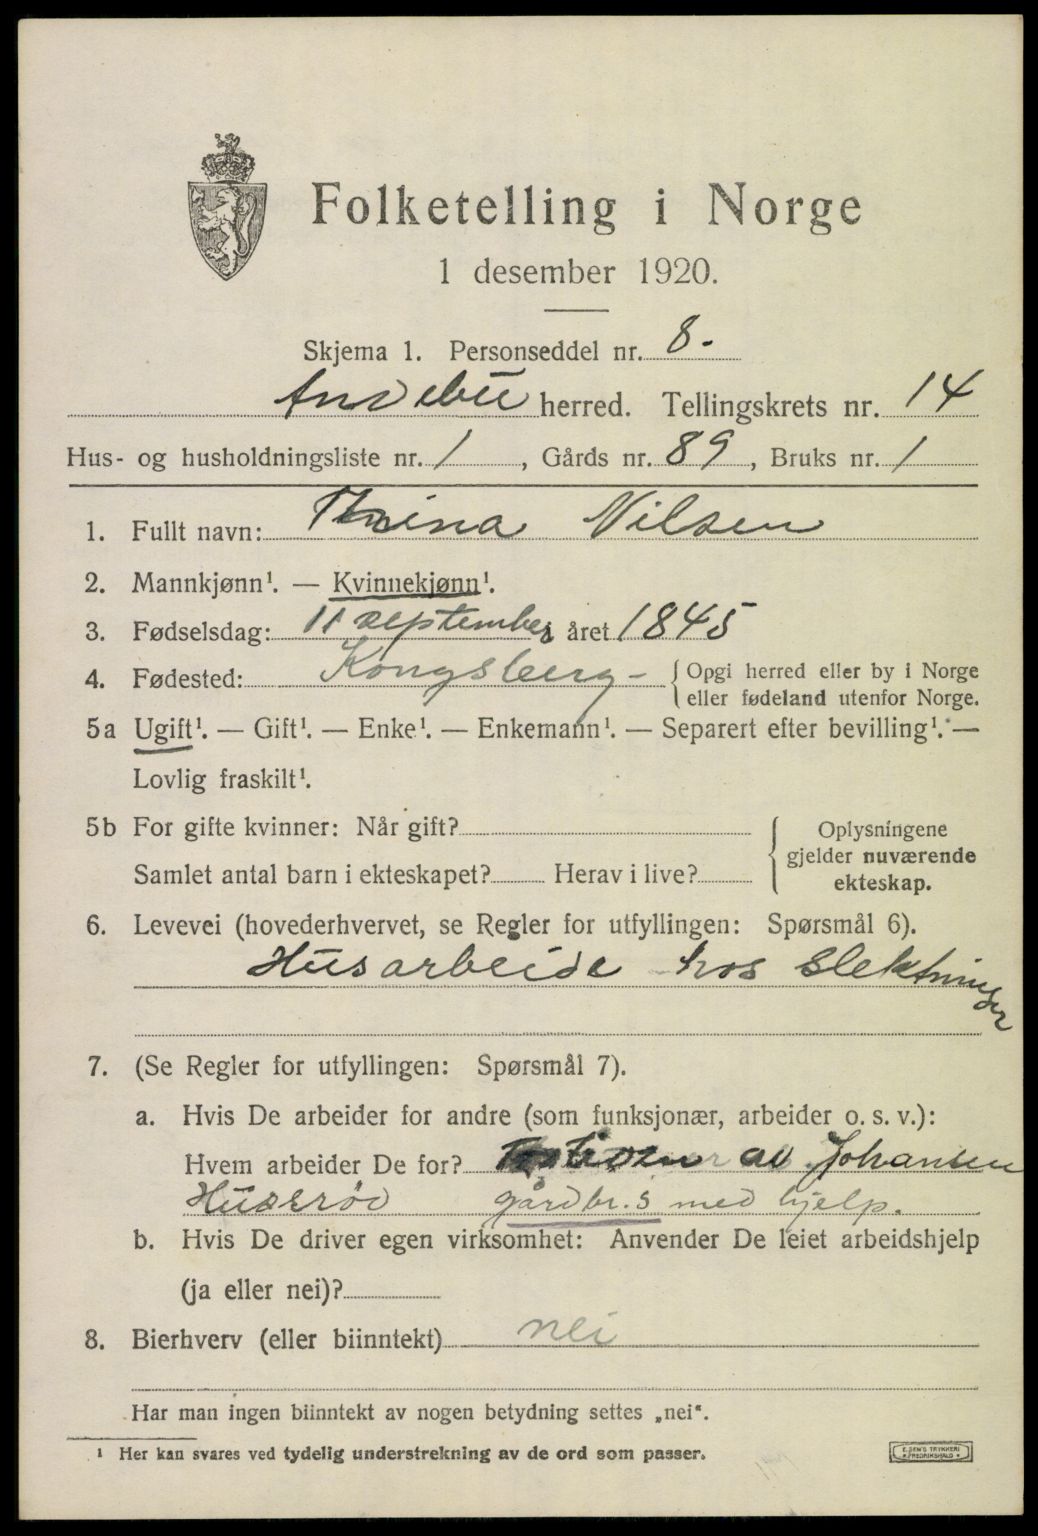 Folketelling i Norge
1 desember 1920.
Skjema 1. Personseddel nr. 8.
Andebu herred. Tellingskrets nr. 14
Hus- og husholdningsliste nr. 1, Gårds nr. 89, Bruks nr. 1
1. Fullt navn: Nilsen
2. Mannkjønn¹. — Kvinnekjønn¹.
3. Fødselsdag: 11 september året 1845
4. Fødested: Kongsberg - Opgi herred eller by i Norge
eller fødeland utenfor Norge.
5a Ugift¹. — Gift¹. — Enke¹. — Enkemann¹. — Separert efter bevilling¹. —
Lovlig fraskilt¹.
5b For gifte kvinner: Når gift? Oplysningene
gjelder nuværende
Samlet antal barn i ekteskapet? Herav i live?
ekteskap.
6. Levevei (hovederhvervet, se Regler for utfyllingen: Spørsmål 6).
Husarbeide hos slektninger
7. (Se Regler for utfyllingen: Spørsmål 7).
a. Hvis De arbeider for andre (som funksjonær, arbeider o. s. v.):
Hvem arbeider De for? av Johansen
Huserød gårdbr. s med hjelp.
b. Hvis De driver egen virksomhet: Anvender De leiet arbeidshjelp
(ja eller nei)?
8. Bierhverv (eller biinntekt) nei
Har man ingen biinntekt av nogen betydning settes „nei“.
¹ Her kan svares ved tydelig understrekning av de ord som passer.
E. SEM'S TRYKKERI
FREDRIKSHALD